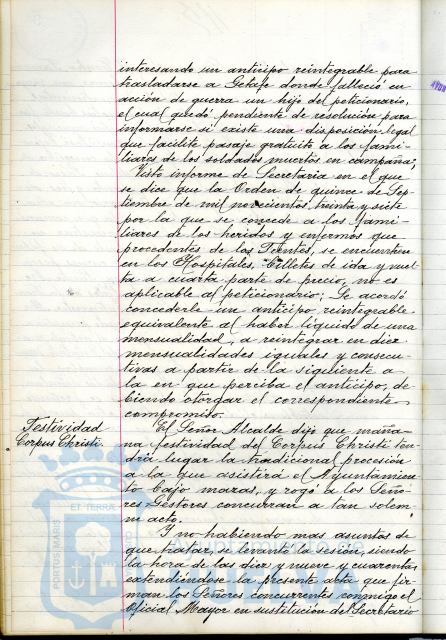 interesando un anticipo reintegrable para
trasladarse a Getafe donde falleció en
acción de guerra un hijo del peticionario,
el cual quedó pendiente de resolución para
informarse si existe una disposición legal
que facilite pasaje gratuito a los fami-
liares de los soldados muertos en campaña;
Visto informe de Secretaria en el que
se dice que la Orden de quince de Sep-
tiembre de mil novecientos treinta y siete
por la que se concede a los fami-
liares de los heridos y enfermos que
procedentes de los Frentes, se encuentren
en los Hospitales, billetes de ida y vuel-
ta a cuarta parte de precio, no es
aplicable al peticionario; Se acordó
concederle un anticipo reintegrable
equivalente al haber líquido de una
mensualidad, a reintegrar en diez
mensualidades iguales y consecu-
tivas a partir de la siguiente a
la en que perciba el anticipo, de-
biendo otorgar el correspondiente
compromiso.
Festividad
Corpus Christi.
El Señor Alcalde dijo que maña-
na festividad del Corpus Christi ten-
drá lugar la tradicional procesión
a la que asistirá el Ayuntamien-
to bajo mazas, y rogó a los Seño-
res Gestores concurran a tan solem-
ne acto.
Y no habiendo mas asuntos de
que tratar, se levantó la sesión, siendo
la hora de las diez y nueve y cuarenta,
extendiéndose la presente acta que fir-
man los Señores concurrentes conmigo el
Oficial Mayor en sustitución del Secretario
PORTUS MARIS
ET TERRÆ
Ayuntamiento de